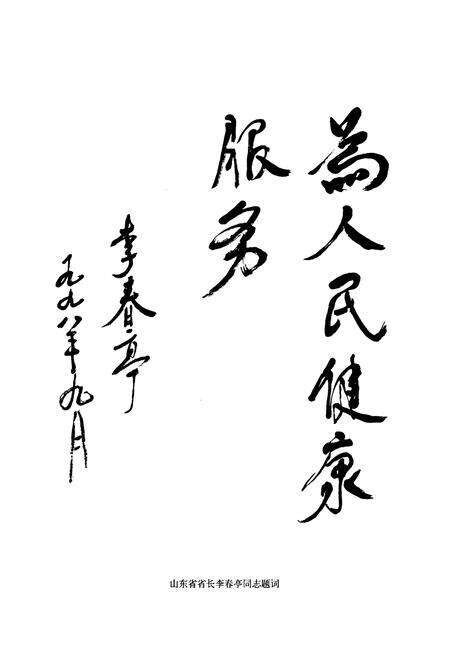 為人民健康
服务
李春亭
一九九八年九月
山东省省长李春亭同志题词